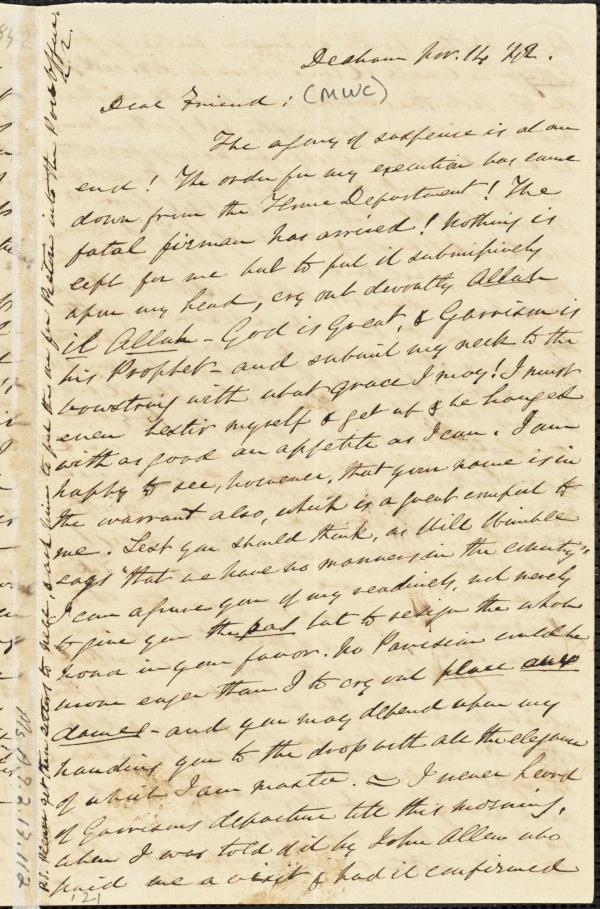 Dedham Nov. 14 '42.
Dear Friend: (MWC)
The agony of suspense is at an
end! The order for my execution has came
down from the Home Department! The
fatal firman has arrived! Nothing is
left for me but to put it submissively
upon my head, cry out devoutly Allah
il Allah - God is Great, & Garrison is
his Prophet - and submit my neck to the
bowstring with what grace I may! I must
even bestir myself & get up & be hanged
with as good an appetite as I can. I am
happy to see, however, that your name is in
the warrant also, which is a great comfort to
me. Lest you should think, as Will Wimble
says "that we have no manners in the country"
I can assure you of my readiness, not merely
to give you the pas but to resign the whole
honor in your favor. No Parisian could be
more eager than I to cry out place aux
dames - and you may depend upon my
handing you to the drop with all the elegance
of which I am master. — I never heard
of Garrison's departure till this morning,
when I was told of it by John Allen who
paid me a visit & had it confirmed
P.S. Please get the letters to
to put the one for
Return into the Post Office.
Ms. A. 9. 2. 17. 112
121